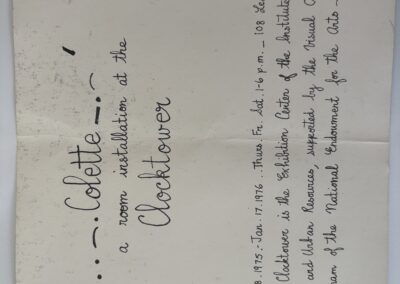 . . ⁓ . Colette ⁓ . ⁓
a room installation at the
Clocktower
8. 1975 :- Jan. 17. 1976 .. Thurs. Fri. Sat. 1-6 p.m. _ 108 Le
Clocktower is the Exhibition Center of the Institute
and Urban Resources, supported by the Visual
am of the National Endowment for the Arts -